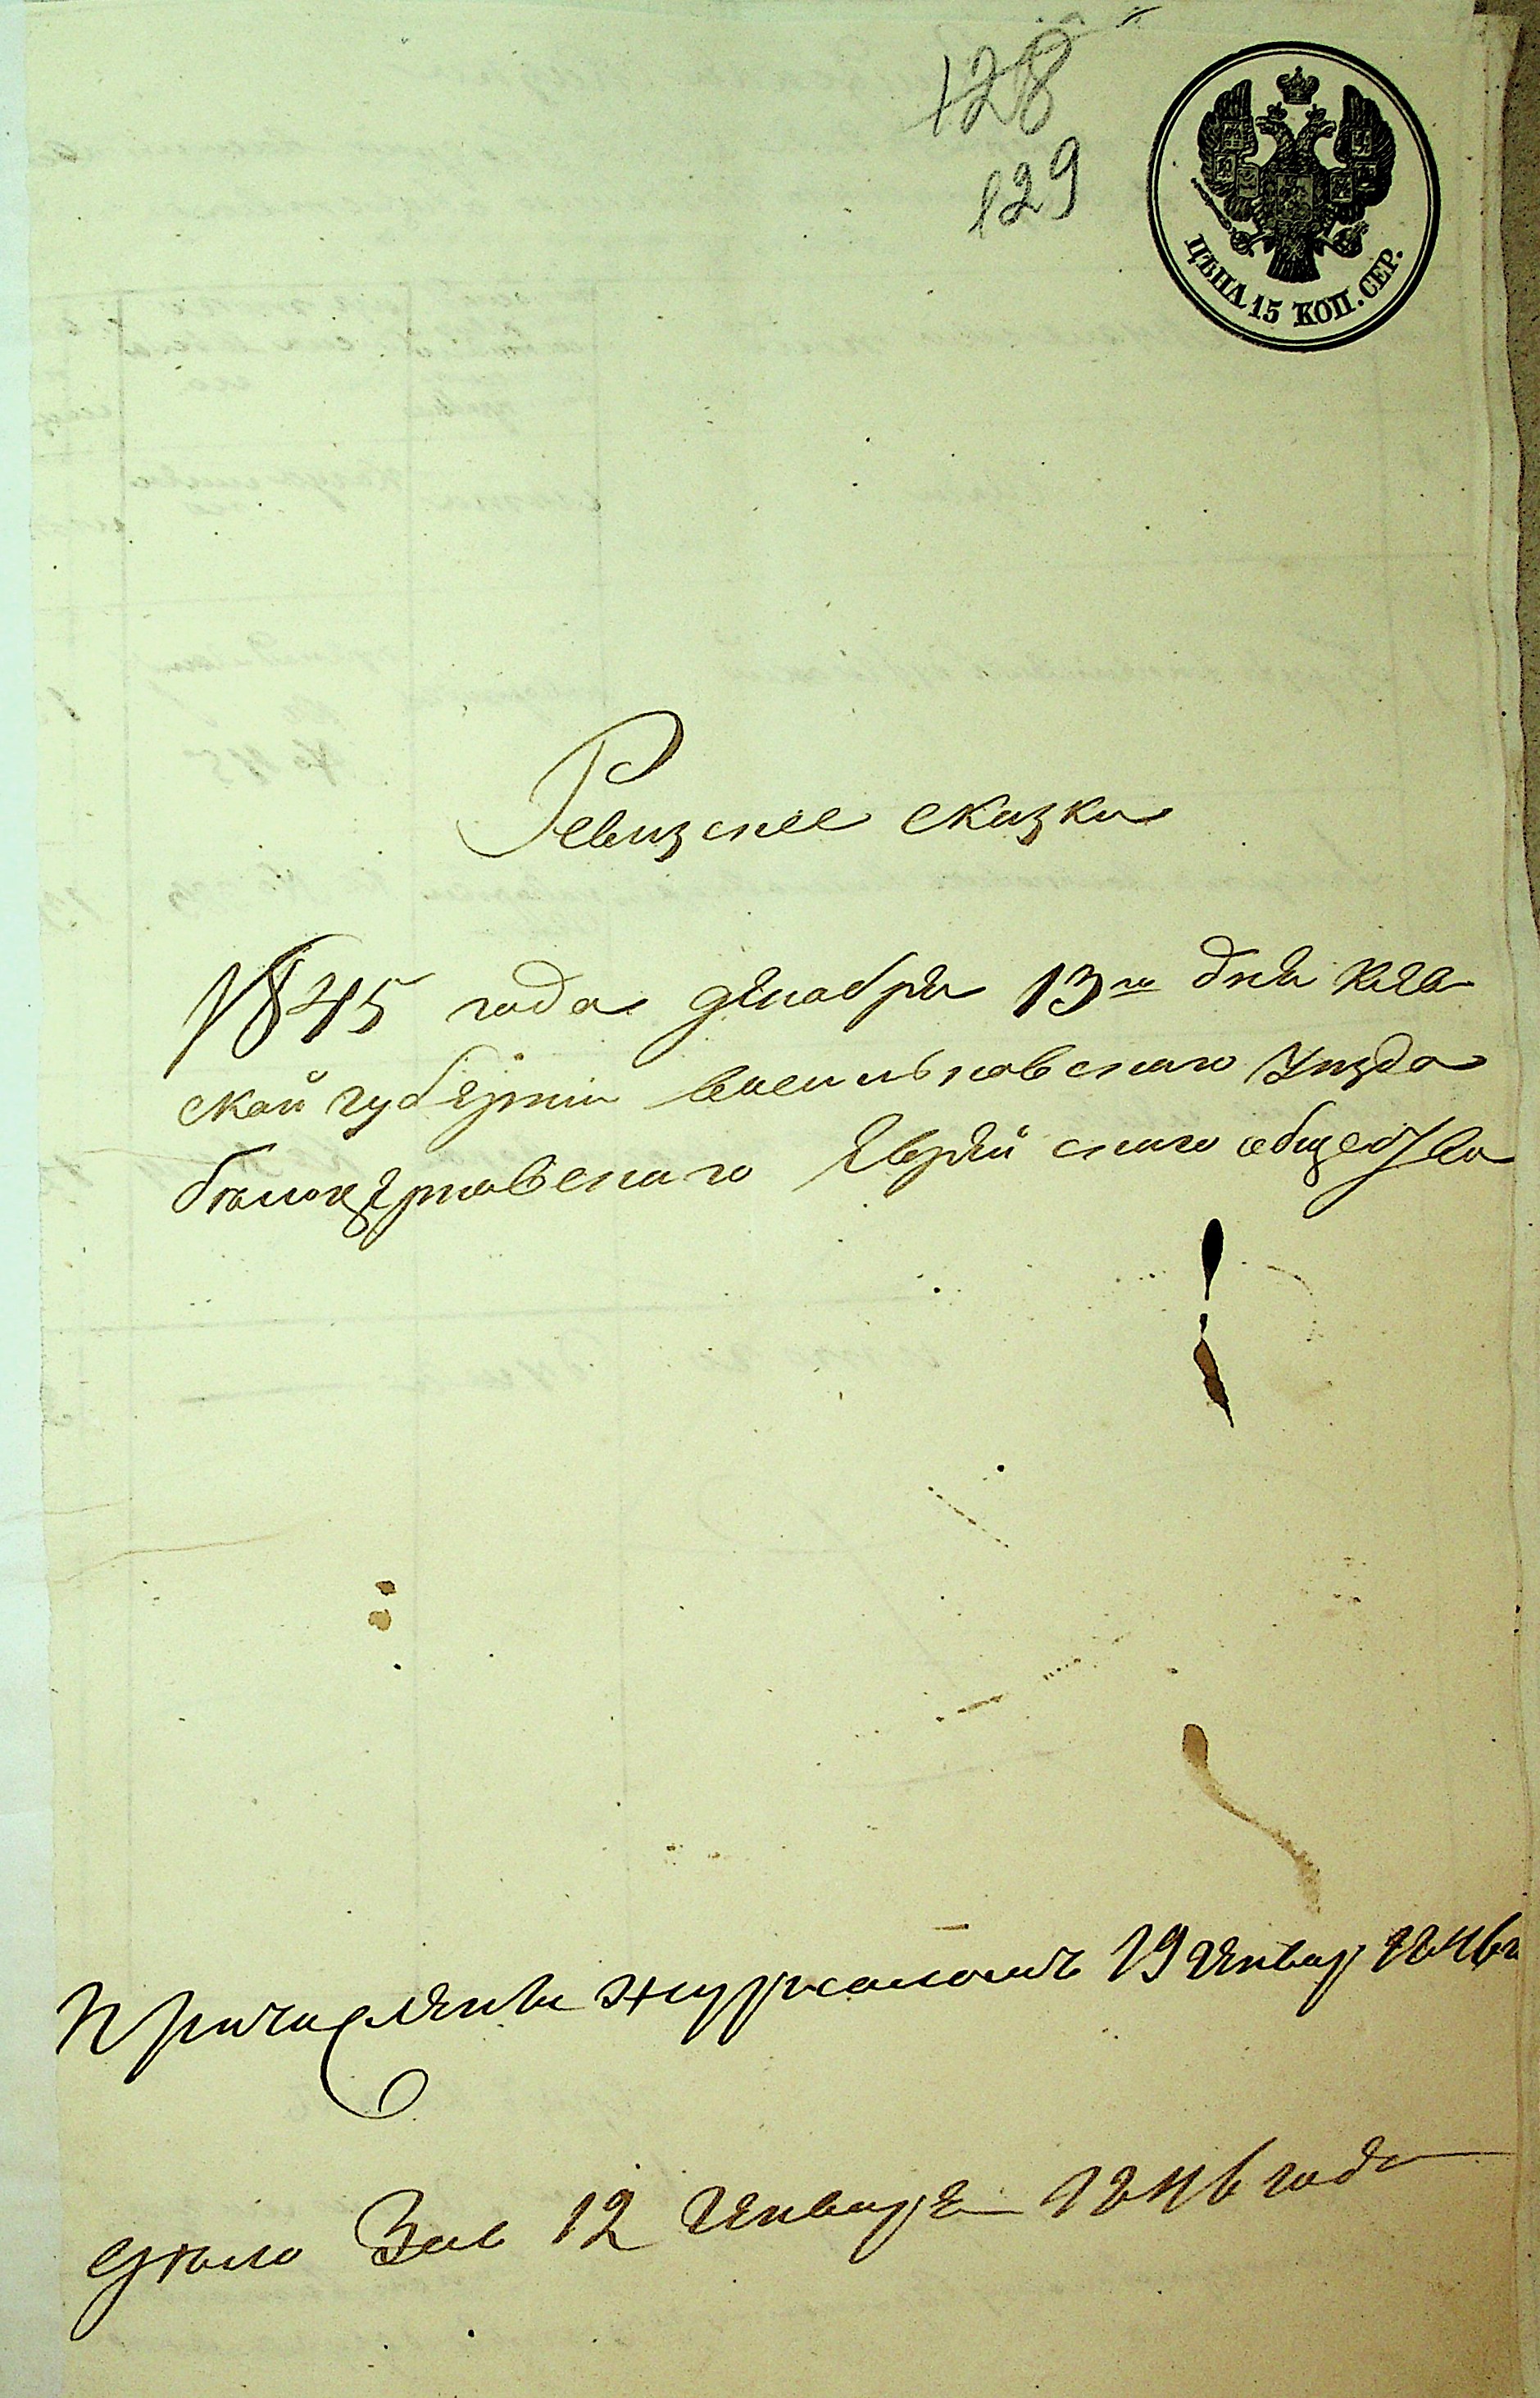 128
129
ЦѢНА 15 КОП. СЕР.
Ревизские сказки
1845 года декабря 13го дня Кіев
ской губерніи васильковскаго уѣзда
бѣлоцерковскаго Еврейскаго общества
Причислены журналомъ 19 Январ 1846 г
дѣло 12 Января 1846 года